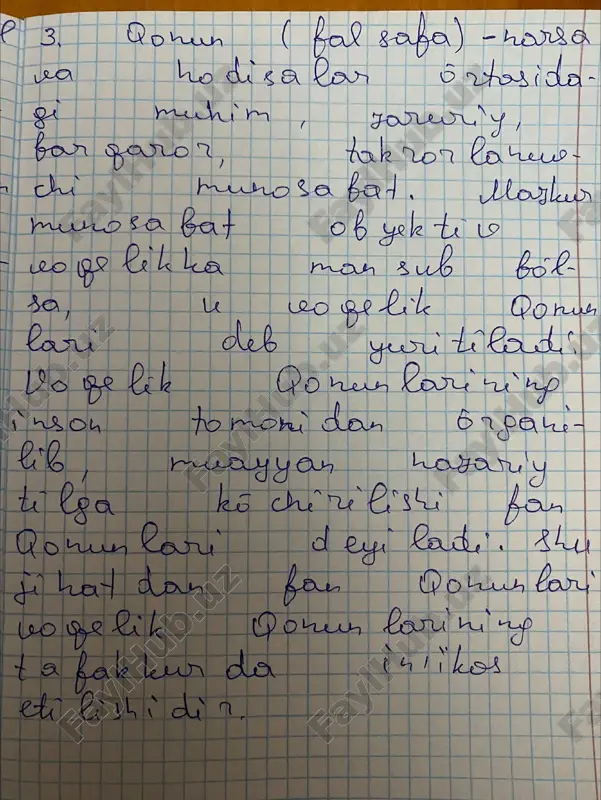 3. Qonun (falsafa) - narsa
va hodisalar õrtasida-
gi muhim, zaruriy,
barqaror, takrorlanuv-
chi munosabat. Mazkur
munosabat obyektiv
voqelikka mansub bõl-
sa, u voqelik Qonun
lari deb yuritiladi.
Voqelik Qonunlarining
inson tomonidan õrgani-
lib, muayyan nazariy
tilga kõchirilishi fan
Qonunlari deyiladi. Shu
jihatdan fan Qonunlari
voqelik Qonunlarining
tafakkurda in'ikos
etilishidir.
FaylHub.uz